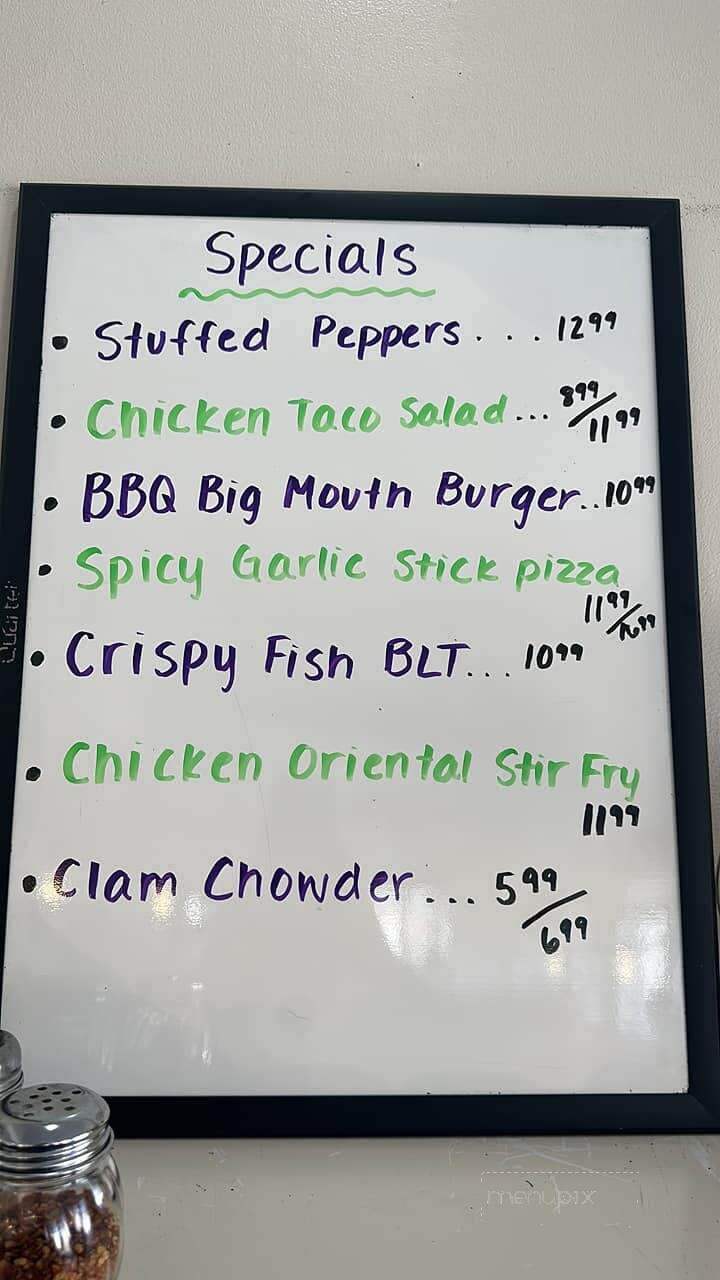 Specials
• Stuffed Peppers... 12 99
• Chicken Taco Salad... 8 99 / 11 99
• BBQ Big Mouth Burger.. 10 99
• Spicy Garlic Stick pizza
11 99 /
• Crispy Fish BLT... 10 99
• Chicken Oriental Stir Fry
11 99
• Clam Chowder... 5 99 / 6 99
Quartet
menupix